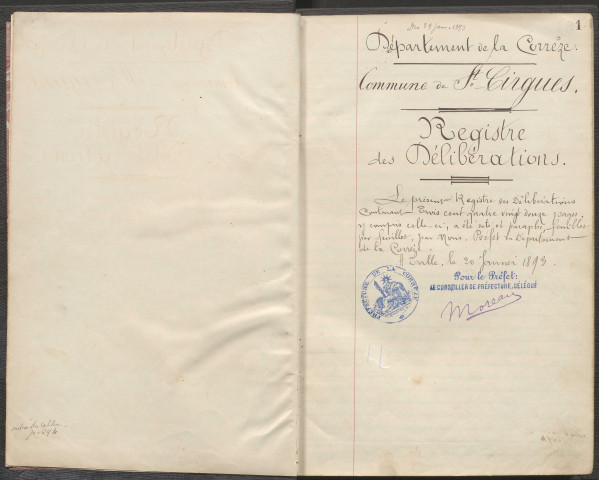 1
Du 29 janv. 1893
Département de la Corrèze.
Commune de St. Cirgues.
Registre
des Délibérations.
Le présent Registre des Délibérations
contenant Trois cent quatre vingt douze pages
y compris celle-ci, a été coté et paraphé, feuillet
par feuillet, par Nous, Préfet du Département
de la Corrèze.
Tulle, le 20 Janvier 1893.
Pour le Préfet:
LE CONSEILLER DE PRÉFECTURE, DÉLÉGUÉ
Moreau
PRÉFECTURE DE LA CORRÈZE